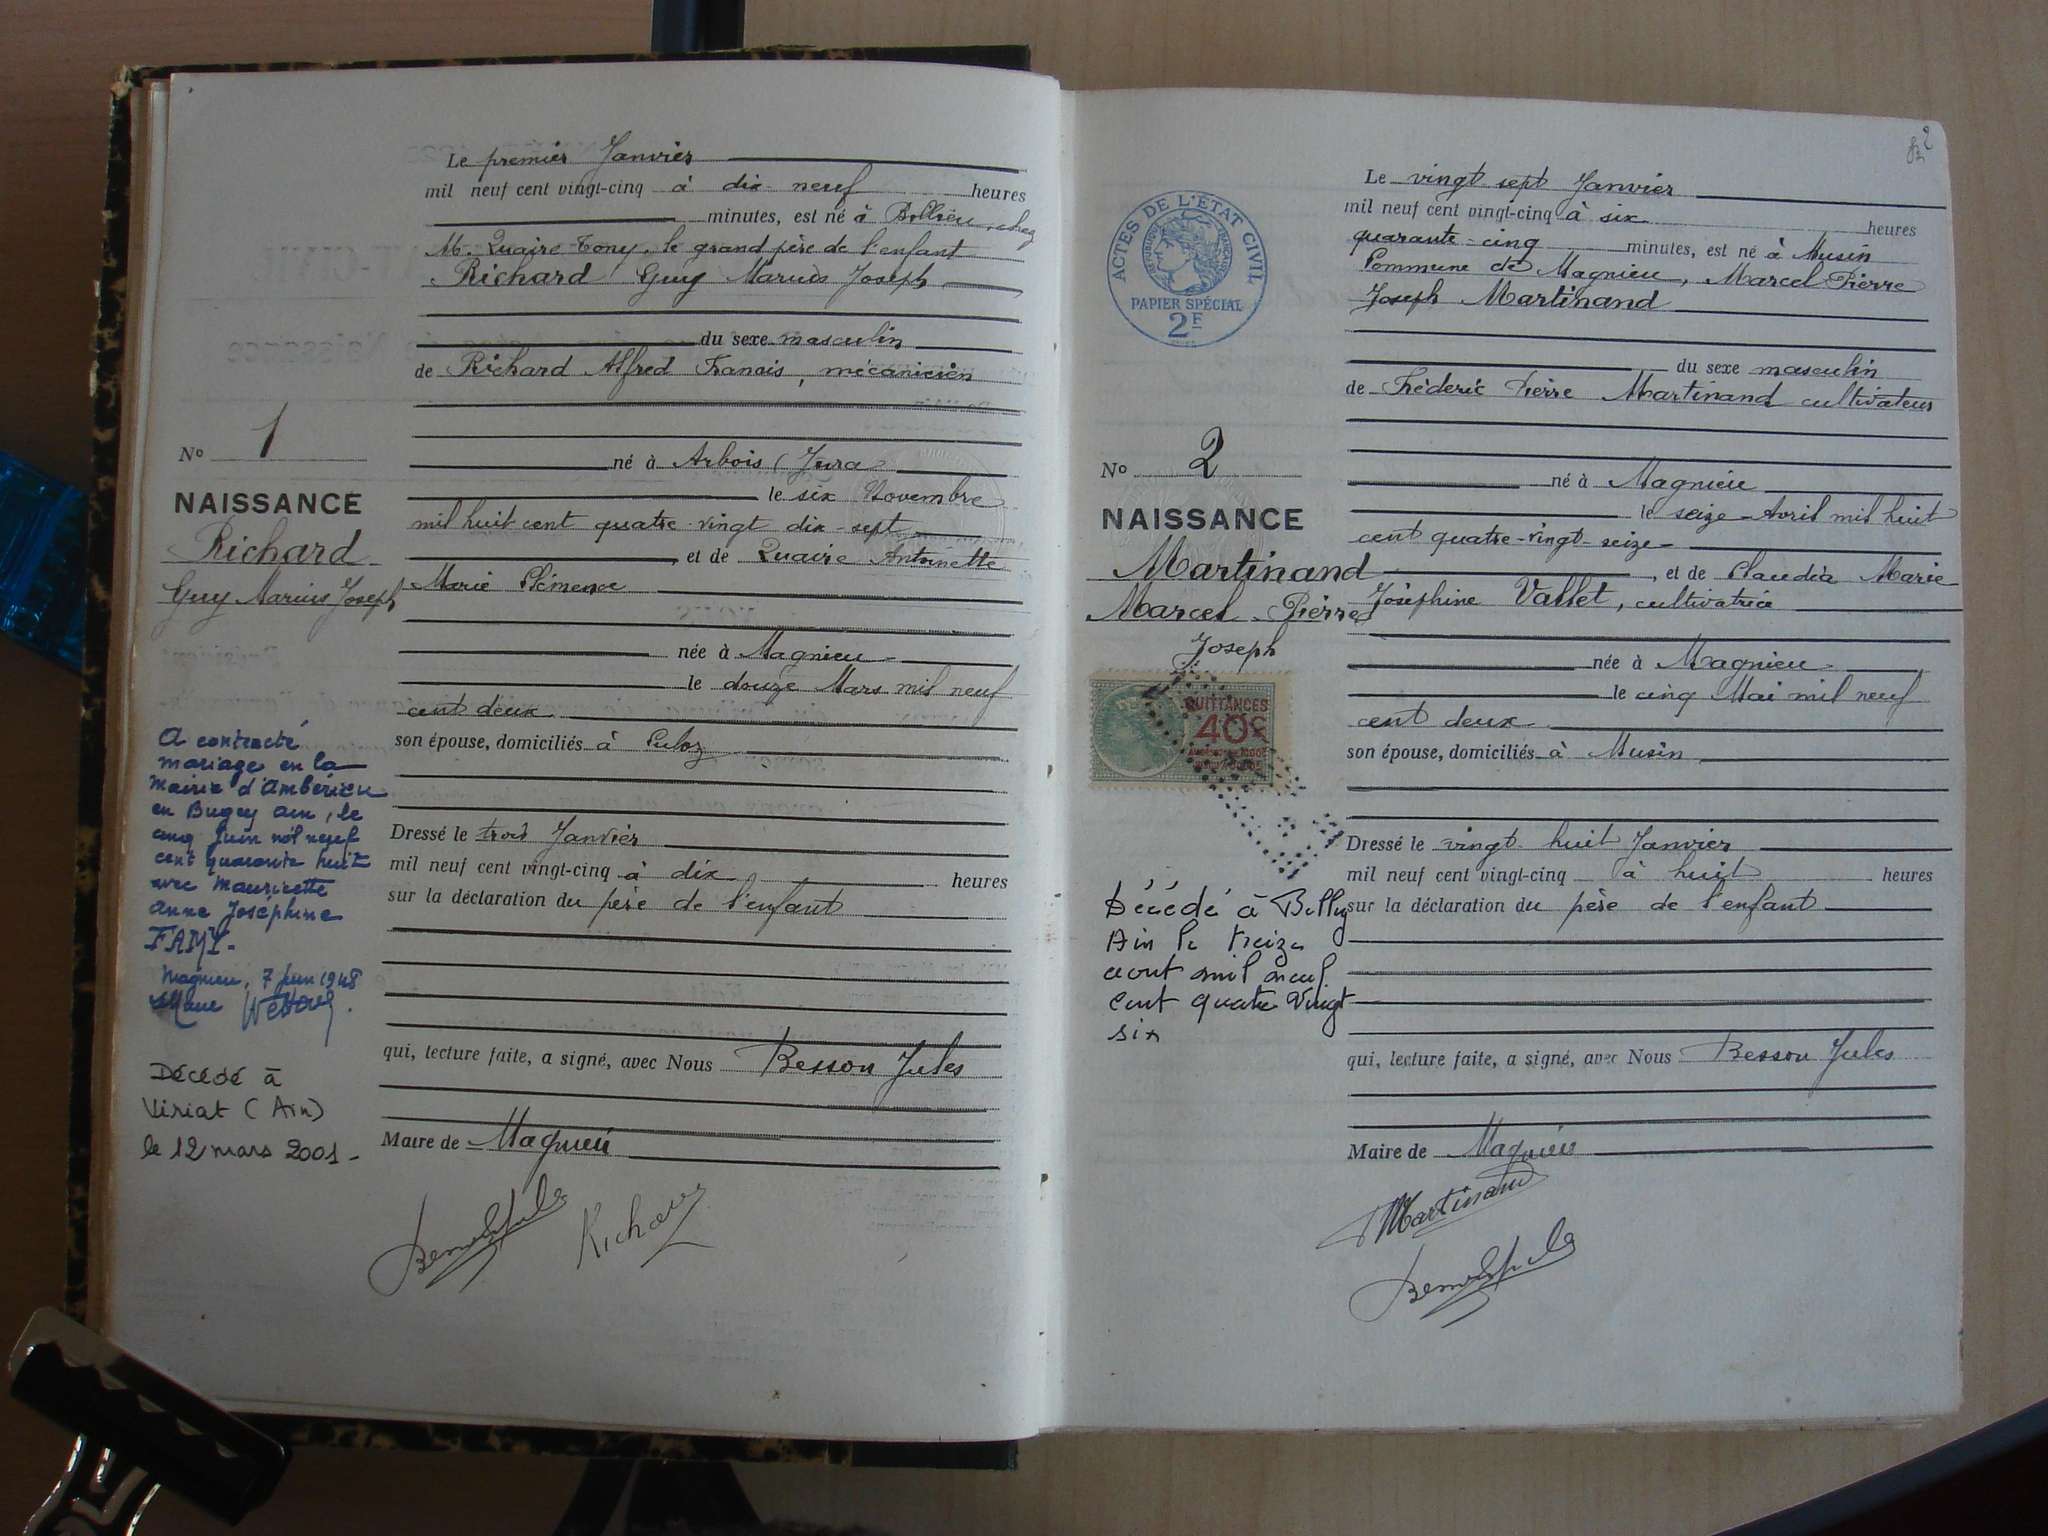 Le premier Janvier
mil neuf cent vingt-cinq à dix neuf heures
minutes, est né à Billieu, chez
M. Quaire Tony, le grand père de l'enfant
Richard Guy Marius Joseph
du sexe masculin
de Richard Alfred Franois, mécanicien
né à Arbois (Jura)
le six Novembre
mil huit cent quatre-vingt dix-sept
, et de Quaire Antoinette
Marie Clémence
née à Magnieu
le douze Mars mil neuf
cent deux
son épouse, domiciliés à Culoz
Dressé le trois Janvier
mil neuf cent vingt-cinq à dix heures
sur la déclaration du père de l'enfant
qui, lecture faite, a signé, avec Nous Besson Jules
Maire de Magnieu
Richard
No 1
NAISSANCE
Richard
Guy Marius Joseph
A contracté
mariage en la
mairie d'Ambérieu
en Bugey Ain, le
cinq Juin mil neuf
cent quarante huit
avec Mauricette
Anne Joséphine
FAMY-
Magnieu, 7 Juin 1948
Décédé à
Viriat (Ain)
le 12 mars 2001-
2
ACTES DE L'ÉTAT CIVIL
RÉPUBLIQUE FRANÇAISE
PAPIER SPÉCIAL
2F
No 2
NAISSANCE
Martinand
Marcel-Pierre
Joseph
QUITTANCES
40c
Décédé à Belley
Ain le treize
aout mil neuf
cent quatre vingt
six
Le vingt sept Janvier
mil neuf cent vingt-cinq à six heures
quarante-cinq minutes, est né à Musin
Commune de Magnieu, Marcel Pierre
Joseph Martinand
du sexe masculin
de Fréderic Pierre Martinand cultivateur
né à Magnieu
le seize Avril mil huit
cent quatre-vingt-seize
, et de Claudia Marie
Joséphine Vallet, cultivatrice
née à Magnieu
le cinq Mai mil neuf
cent deux
son épouse, domiciliés à Musin
Dressé le vingt huit Janvier
mil neuf cent vingt-cinq à huit heures
sur la déclaration du père de l'enfant
qui, lecture faite, a signé, avec Nous Besson Jules
Maire de Magnieu
Martinand